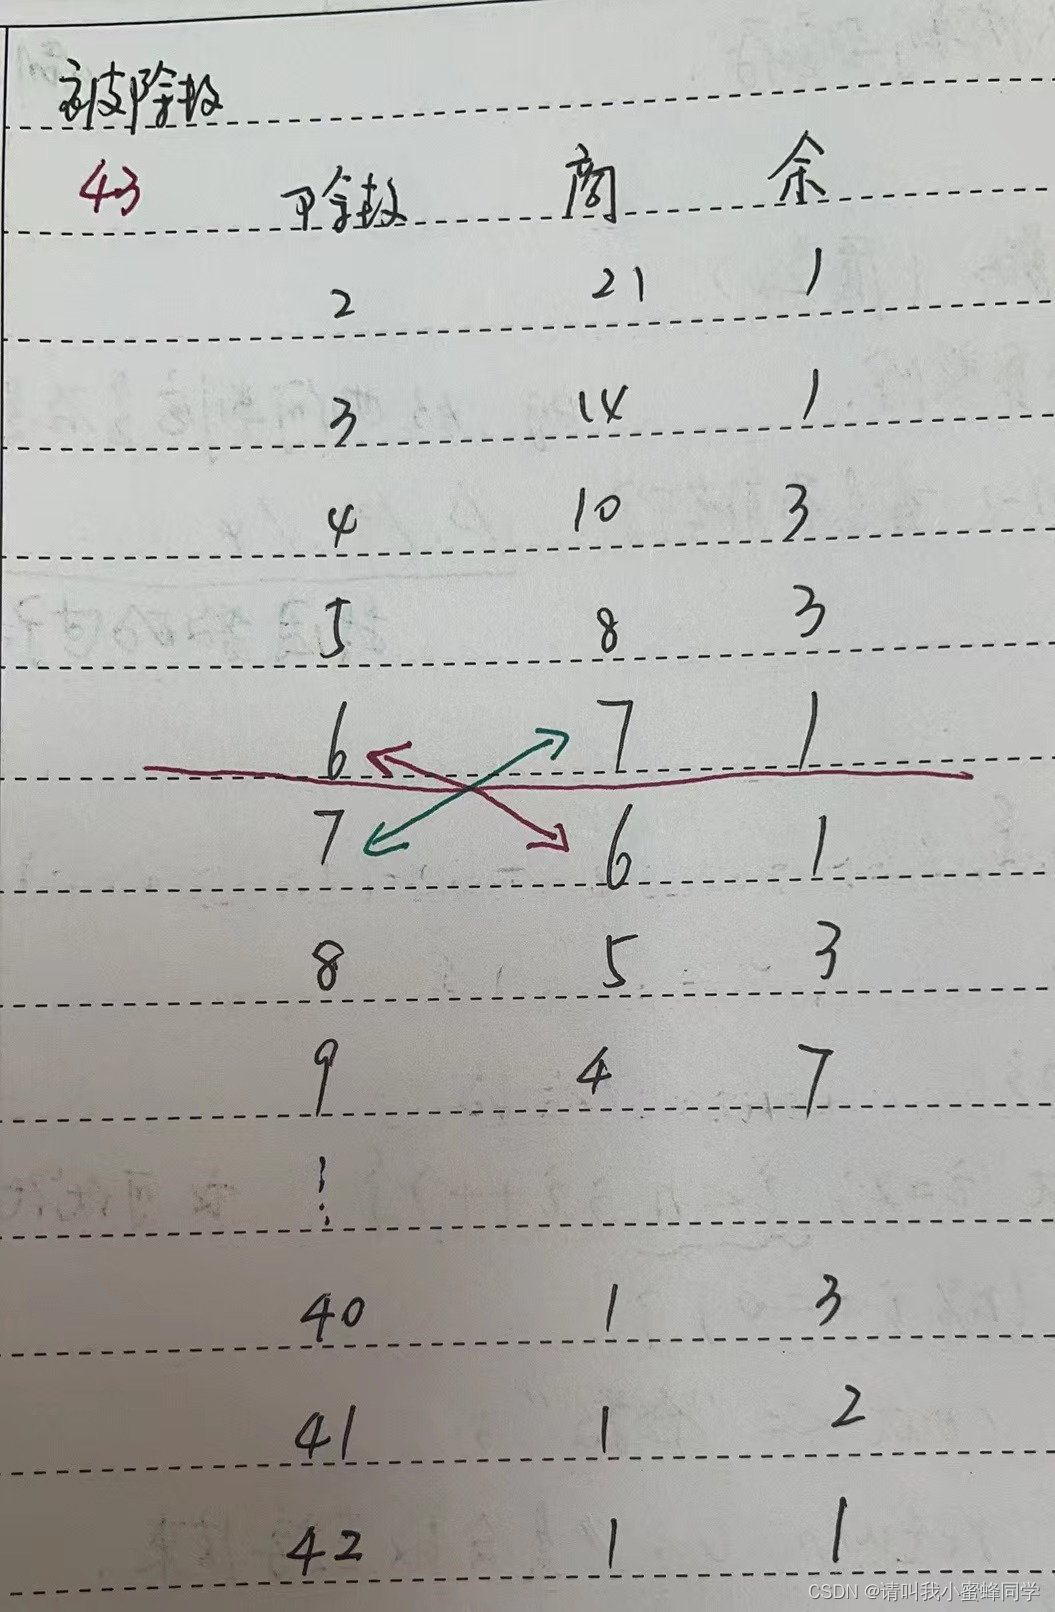 被除数
43 除数 商 余
2 21 1
3 14 1
4 10 3
5 8 3
6 7 1
7 6 1
8 5 3
9 4 7
⋮
40 1 3
41 1 2
42 1 1
CSDN @请叫我小蜜蜂同学